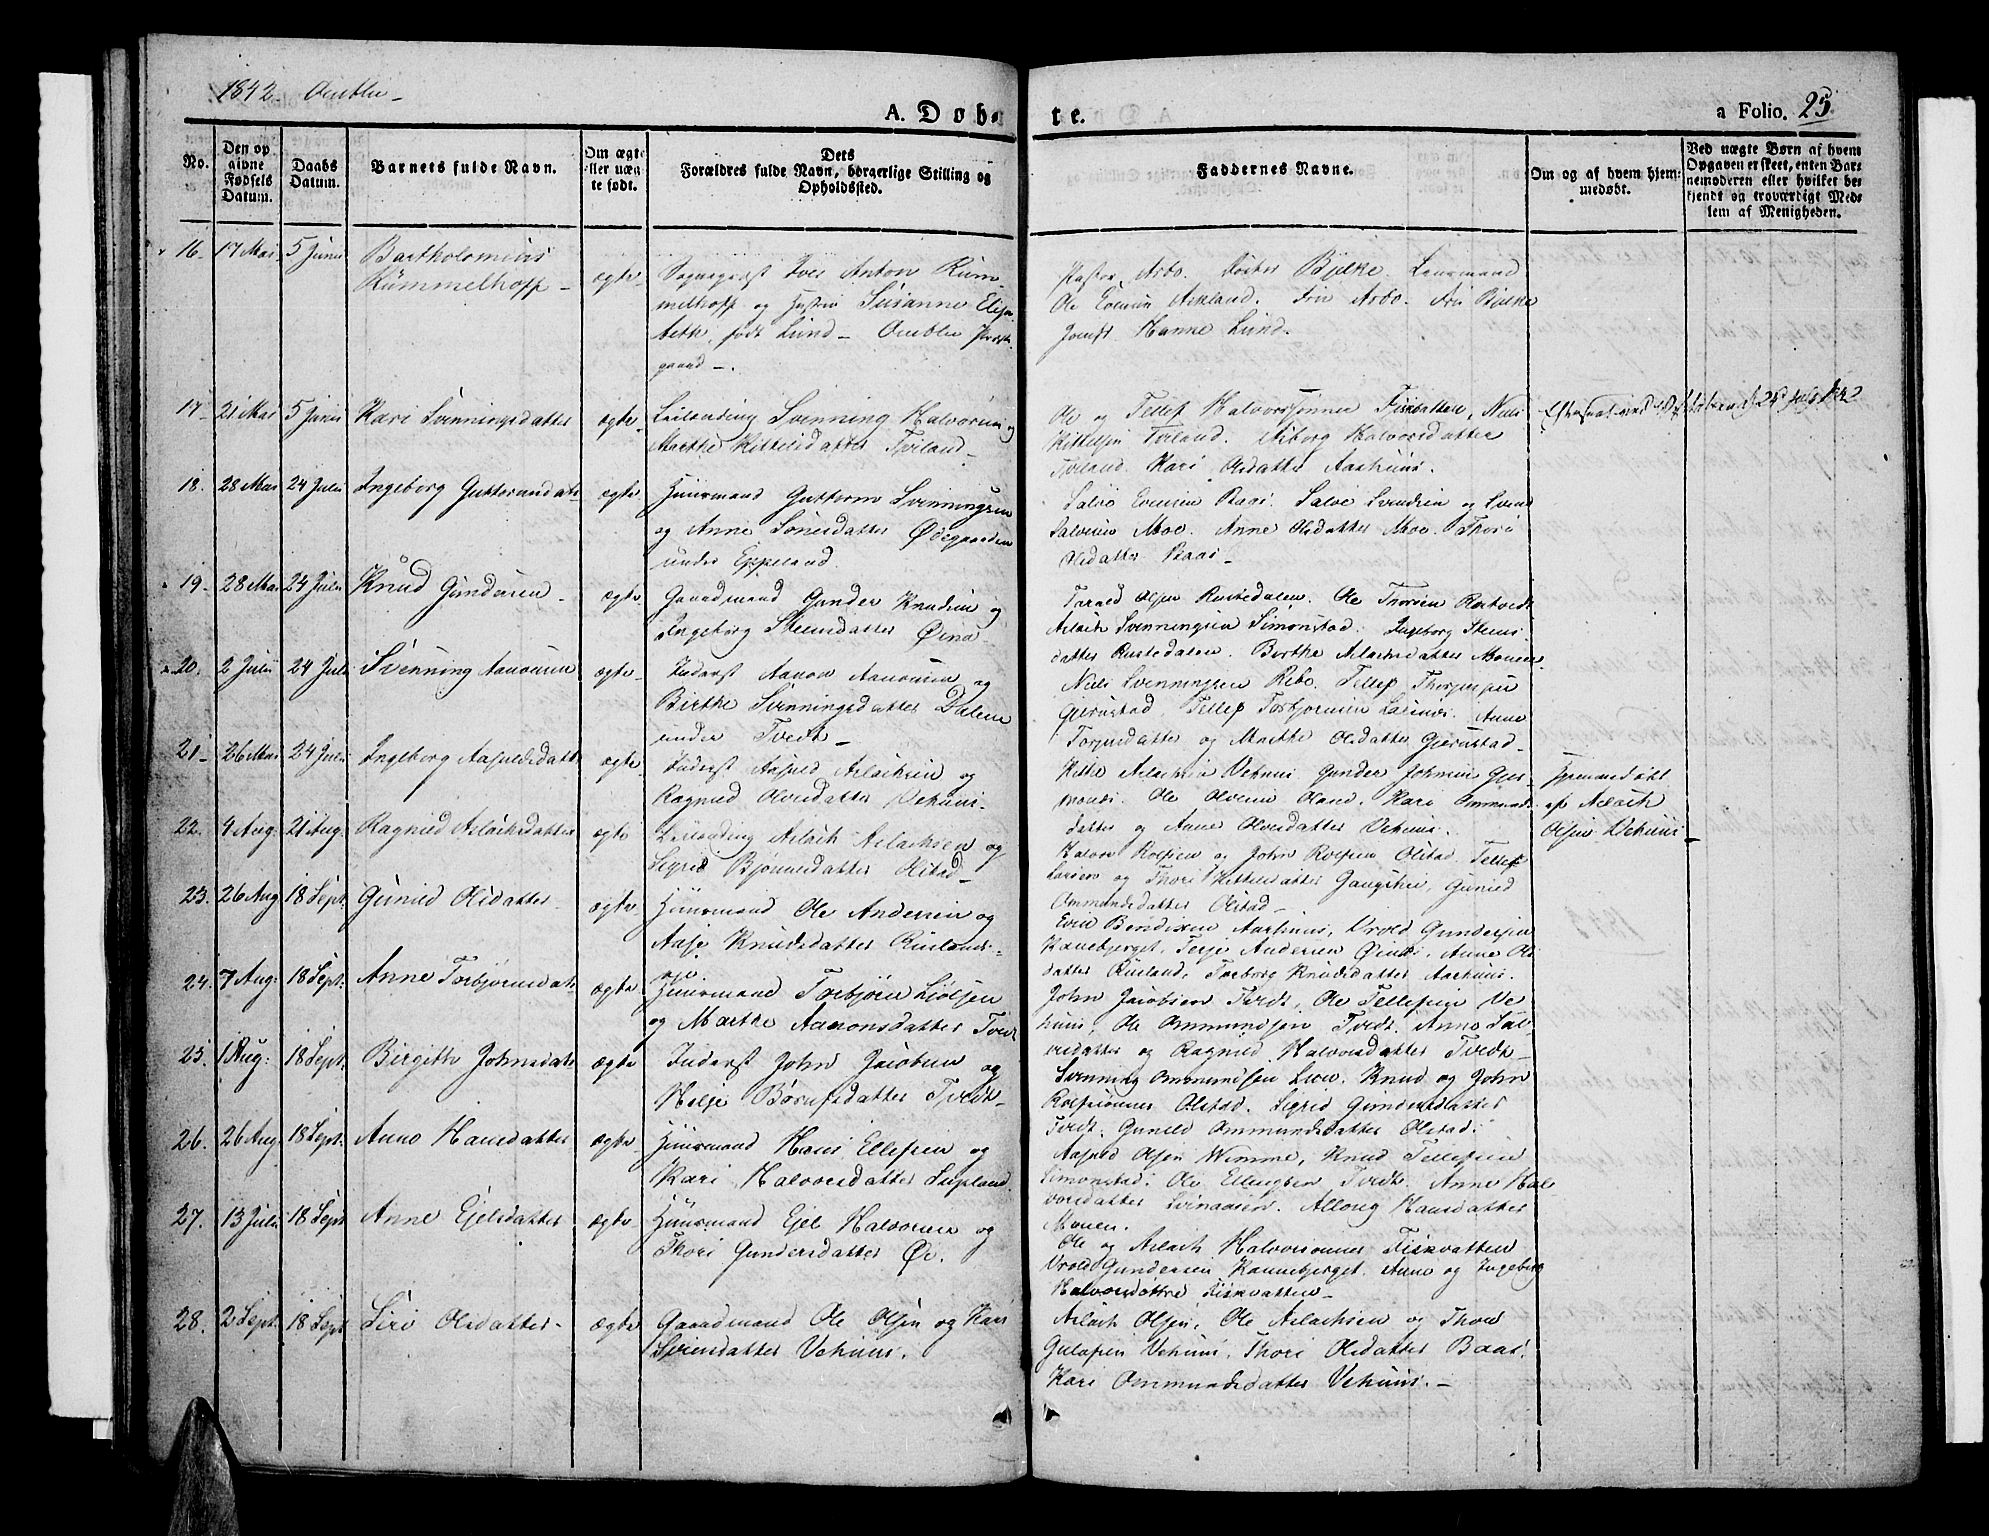 1842 Aamlie
A. Døb-
te.
a Folio. 25.
No.
Den op
givne
Fødsels
Datum.
Daabs
Datum.
Barnets fulde Navn.
Om ægte
eller uæg
te født.
Dets
Forældres fulde Navn, borgerlige Stilling og
Opholdssted.
Faddernes Navne.
Om og af hvem hjem-
medøbt.
Ved uægte Børn af hvem
Opgaven er skeet, enten Bar-
nemoderen eller hvilket be-
kjendt og troværdigt Med-
lem af Menigheden.
16. 17 Mai 5 Junii Bartholomæus
Rümmelhoff ægte Sognepræst Iver Anton Rüm-
melhoff og Hustru Susanne Elisa-
beth, født Lund - Aamlie Præste-
gaard -.
Pastor Arbo. Bjelke. Lensmand
Ole Askland. Fru Arbo. Fru Bjelke
Jomfr Hanne Lund.
17. 21 Mai 5 Junii Kari Svenningsdatter ægte Leilænding Svenning Halvorsen og
Marthe Kittelsdatter Tviland
Ole og Tellef Halvorssønner Fiskvatten, Niels
Kittelsen Tviland. Asborg Halvorsdatter
Tviland. Kari Olsdatter Aashuus.
18. 28 Mai 24 Julii Ingeborg Guttormsdatt: ægte Huusmand Guttorm Svenningsen
og Anne Sørensdatter Ødegaarden
under Eppeland.
Salve Evensen Baas. Salve Svendsen og Svend
Salvesen Moe. Anne Olsdatter Moe. Thore
Olsdatter Baas
19. 28 Mai 24 Julii Knud Gundersen ægte Gaardmand Gunder Knudsen og
Ingeborg Steensdatter Øinæs
Tarald Olsen Rustedalen. Ole Thorsen
Aslach Svenningsen Simonstad. Ingeborg Steens-
datter Rustedalen. Birthe Aslachsdatter Monen
20. 2 Julii 24 Julii Svenning Aanonsen ægte Inderst Aanon Aanonsen og
Birthe Svenningsdatter Dalene
under Tvedt
Niels Svenningsen Rebo. Tellef Thorjussen
Gjerustad. Tellef Torbjørnsen. Anne
Torjusdatter og Marthe Olsdatter Gjerustad
21 26 Mai 24 Julii Ingeborg Aasuldsdatt: ægte Inderst Aasuld Aslachsen og
Ragnild Olvesdatter Vehuus
Aslachsen Vehuus. Gunder Johnsen
Ole Olvesen Oland. Kari Ommunds-
datter og Anne Olvesdatter Vehuus.
Hjemmedøbt
af Aslach
Olsen Vehuus
22. 4 Aug: 21 Aug. Ragnild Aslachsdatter ægte Leilænding Aslach Aslachsen og
Sigrid Bjørnsdatter Olstad
Halvor Rolfsen og John Rolfsen Olstad. Tellef
Larsen og Thori Kittelsdatter, Gunild
Ommundsdatter Olstad
23. 26 Aug 18 Sept. Gunild Olsdatter ægte Huusmand Ole Andersen og
Aase Knudsdatter
Even Bendixen Aashuus, Vrold Gundersen
Kannebjerget, Terje Andersen Øinæs, Anne Ols-
datter, Torborg Knudsdatter Aashuus.
24. 7 Aug: 18 Sept. Anne Torbjørnsdatt: ægte Huusmand Torbjørn
og Marthe Aanonsdatter Tvedt
John Jacobsen Tvedt, Ole Tellefsen Ve-
huus, Ole Ommundsen Tvedt. Anne Sal-
vesdatter og Ragnild Halvorsdatter Tvedt
25. 1 Aug: 18 Sept. Birgitte Johnsdatt: ægte Inderst John Jacobsen og
Helje Tvedt
Svenning Ommundsen Lien. Knud og John
Rolfsønner Olstad. Sigrid Gundersdatter
Tvedt. Gunild Ommundsdatter Olstad.
26. 26 Aug 18 Sept. Anne Hansdatter ægte Huusmand Hans Ellefsen og
Kari Halvorsdatter
Aasuld Olsen Wimme, Knud Tellefsen
Simonstad. Ole Ellingsen Tvedt. Anne Hal-
vorsdatter. Hansdatter
Monen.
27. 13 Julii 18 Sept Anne Ejelsdatter ægte Huusmand Ejel Halvorsen og
Thori Gundersdatter Øi.
Ole og Aslach Halvorsønner Fiskvatten
Vrold Gundersen Kannebjerget. Anne og Ingeborg
Halvorsdøttre Fiskvatten
28. 2 Sept. 18 Sept Siri Olsdatter ægte Gaardmand Ole Olsen og Kari
Svensdatter Vehuus.
Aslach Olsen, Ole Aslachsen og Thor
Vehuus, Thori Olsdatter Baas.
Kari Ommundsdatter Vehuus.